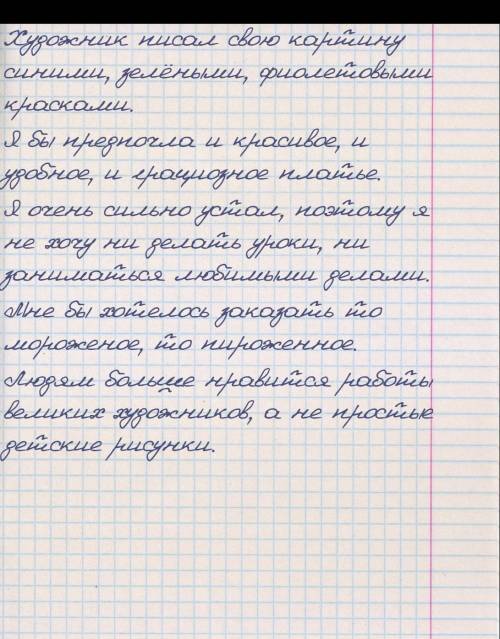 Художник писал свою картину
синими, зелёными, фиолетовыми
красками.
Я бы предпочла и красивое, и
удобное, и грациозное платье.
Я очень сильно устал, поэтому я
не хочу ни делать уроки, ни
заниматься любимыми делами.
Мне бы хотелось заказать то
мороженое, то пироженное.
Людям больше нравится работы
великих художников, а не простые
детские рисунки.